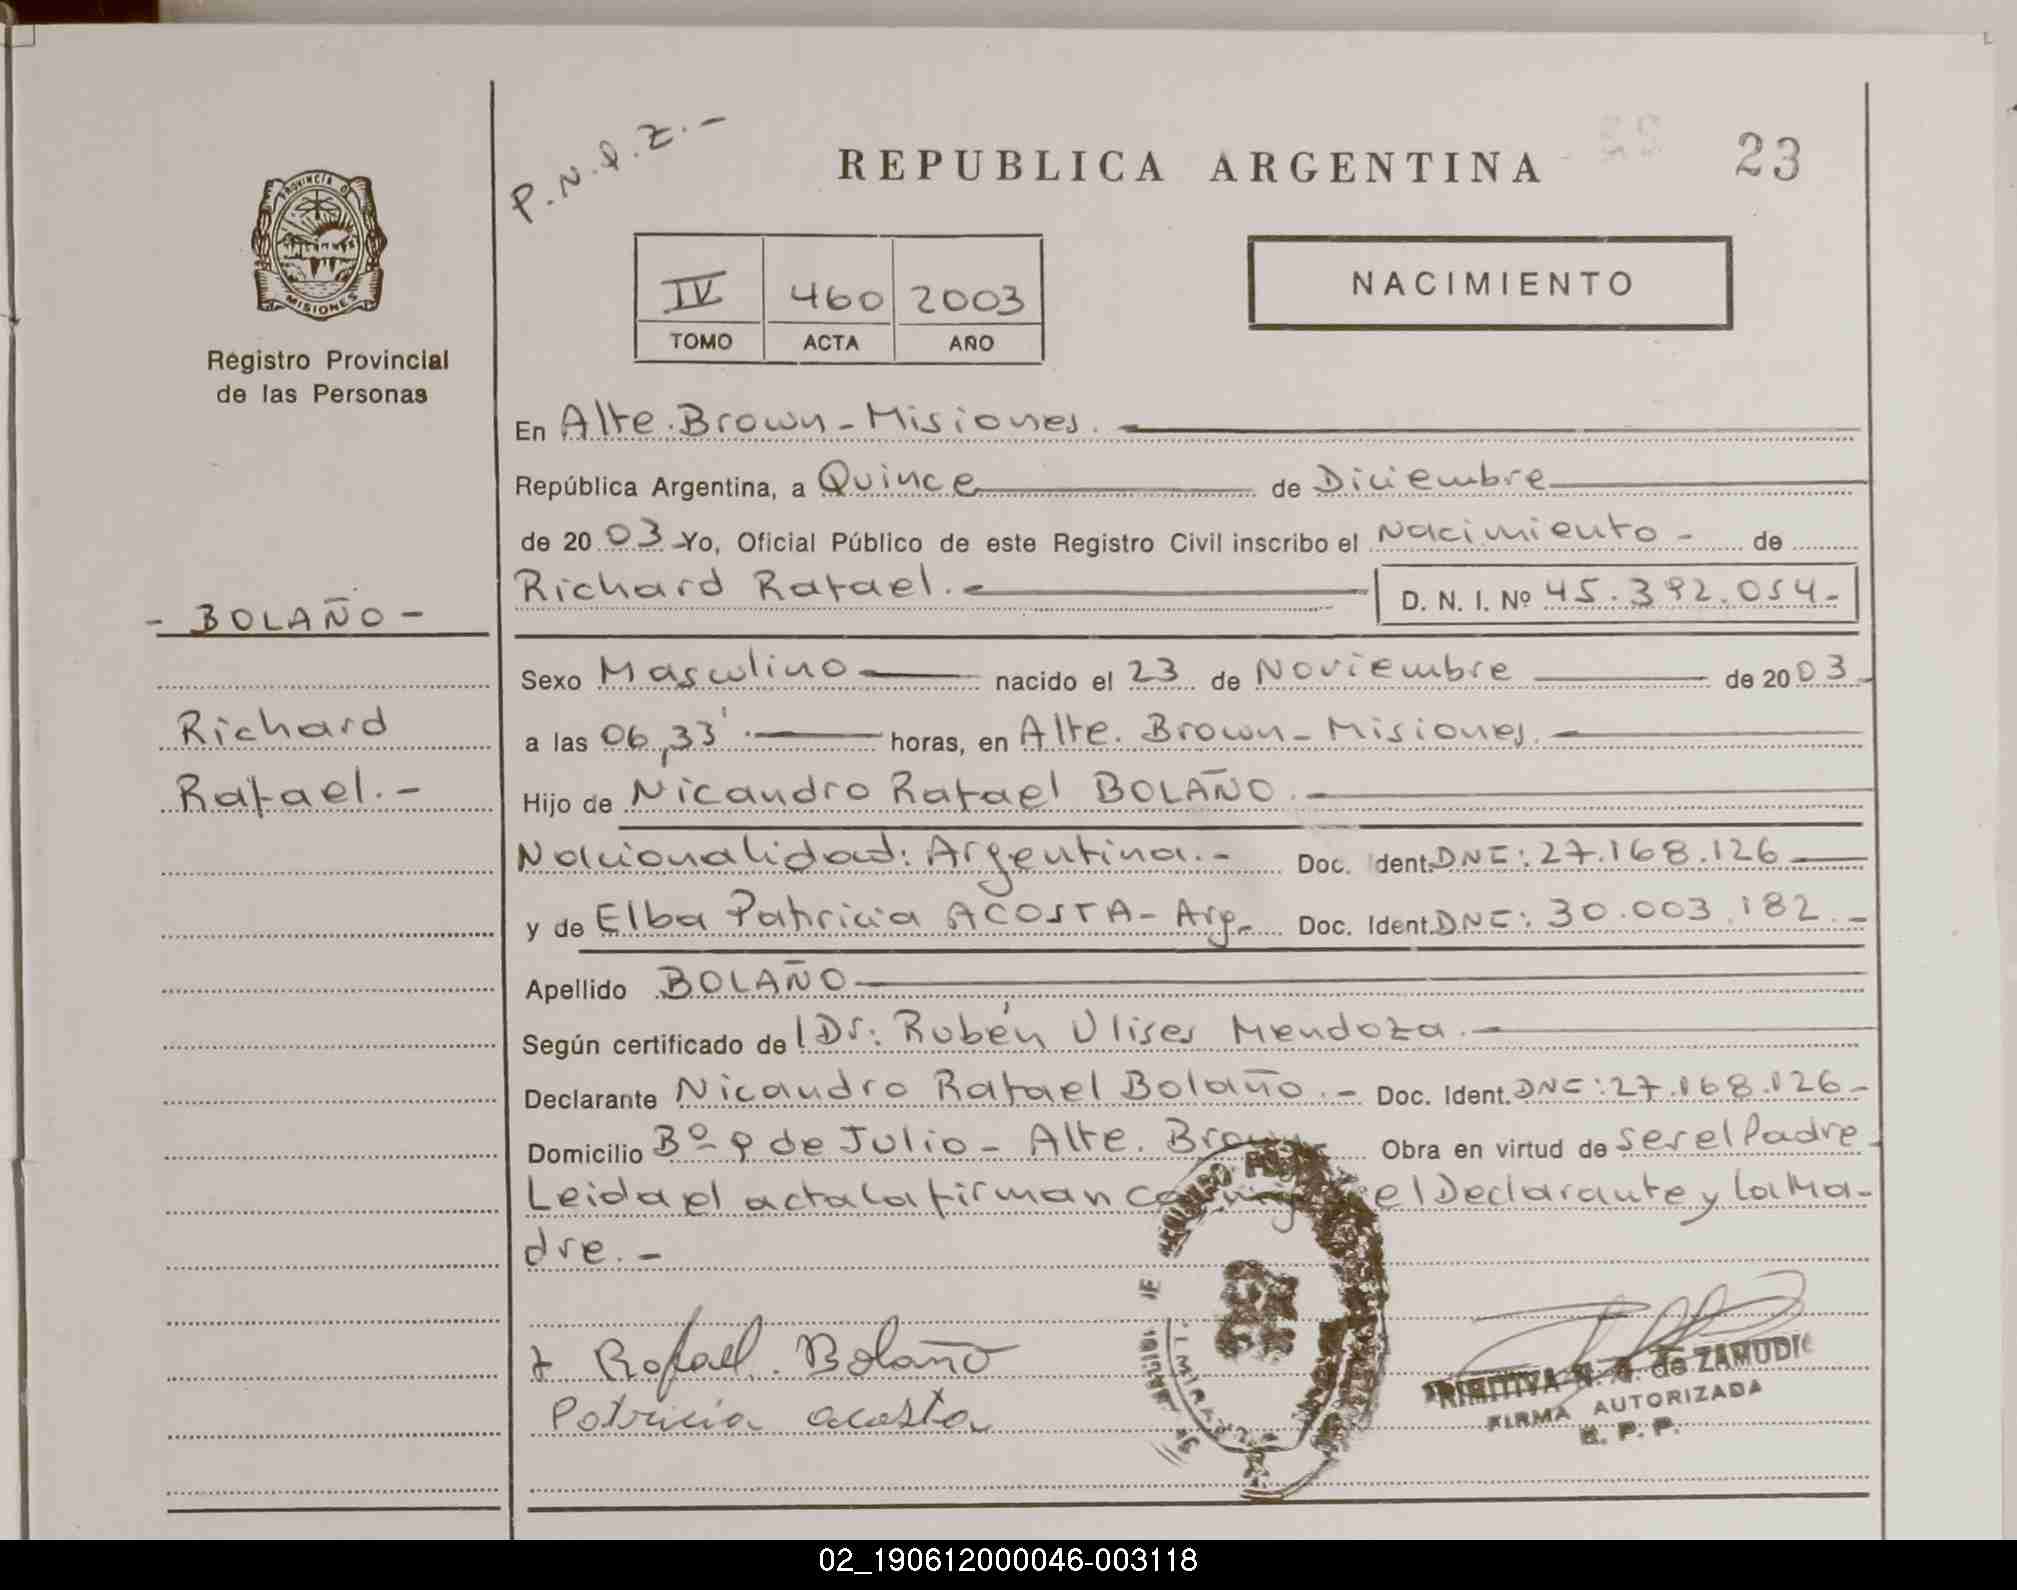 P.N.Q.Z.-
REPUBLICA ARGENTINA
23
PROVINCIA D
MISIONES
Registro Provincial
de las Personas
IV 460 2003
TOMO ACTA AÑO
NACIMIENTO
En Alte. Brown - Misiones.
República Argentina, a Quince de Diciembre
de 2003 Yo, Oficial Público de este Registro Civil inscribo el Nacimiento - de
Richard Rafael. D. N. I. Nº 45.392.054-
- BOLAÑO -
Richard
Rafael.-
Sexo Masculino nacido el 23 de Noviembre de 2003
a las 06,33' horas, en Alte. Brown - Misiones.
Hijo de Nicandro Rafael BOLAÑO.
Nacionalidad: Argentina.- Doc. Ident. DNI: 27.168.126
y de Elba Patricia ACOSTA - Arg. Doc. Ident. DNI: 30.003.182.-
Apellido BOLAÑO
Según certificado de l Dr: Rubén Ulises Mendoza.-
Declarante Nicandro Rafael Bolaño.- Doc. Ident. DNI: 27.168.126-
Domicilio Bº 9 de Julio - Alte. Brown Obra en virtud de ser el Padre
Leida el acta la firman conmigo el Declarante y la Ma-
dre.-
Rafael. Bolaño
Patricia acosta
de ZAMUDIO
FIRMA AUTORIZADA
R. P. P.
02_190612000046-003118